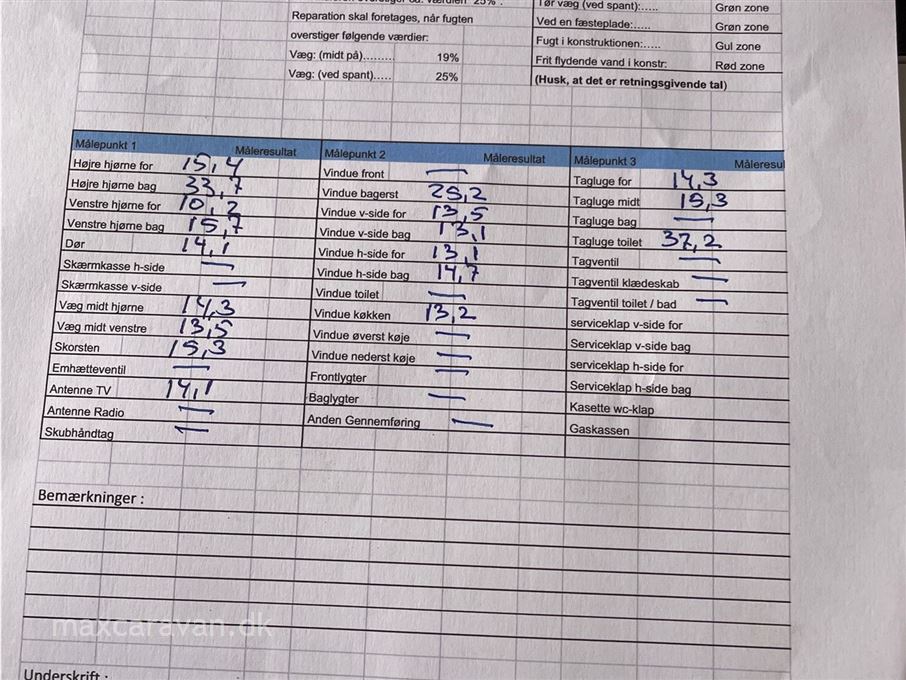 25% .
Reparation skal foretages, når fugten
overstiger følgende værdier:
Væg: (midt på)......... 19%
Væg: (ved spant)..... 25%
Tør væg (ved spant):..... Grøn zone
Ved en fæsteplade:..... Grøn zone
Fugt i konstruktionen:..... Gul zone
Frit flydende vand i konstr: Rød zone
(Husk, at det er retningsgivende tal)
Målepunkt 1 Måleresultat
Højre hjørne for 15,4
Højre hjørne bag 33,7
Venstre hjørne for 10,2
Venstre hjørne bag 15,7
Dør 14,1
Skærmkasse h-side —
Skærmkasse v-side —
Væg midt hjørne 14,3
Væg midt venstre 13,5
Skorsten 15,3
Emhætteventil —
Antenne TV 14,1
Antenne Radio —
Skubhåndtag —
Målepunkt 2 Måleresultat
Vindue front —
Vindue bagerst 25,2
Vindue v-side for 13,5
Vindue v-side bag 13,1
Vindue h-side for 13,1
Vindue h-side bag 14,7
Vindue toilet —
Vindue køkken 13,2
Vindue øverst køje —
Vindue nederst køje —
Frontlygter —
Baglygter —
Anden Gennemføring —
Målepunkt 3 Måleresul
Tagluge for 14,3
Tagluge midt 15,3
Tagluge bag —
Tagluge toilet 37,2
Tagventil —
Tagventil klædeskab —
Tagventil toilet / bad —
serviceklap v-side for
Serviceklap v-side bag
serviceklap h-side for
Serviceklap h-side bag
Kasette wc-klap
Gaskassen
Bemærkninger :
maxcaravan.dk
Underskrift :